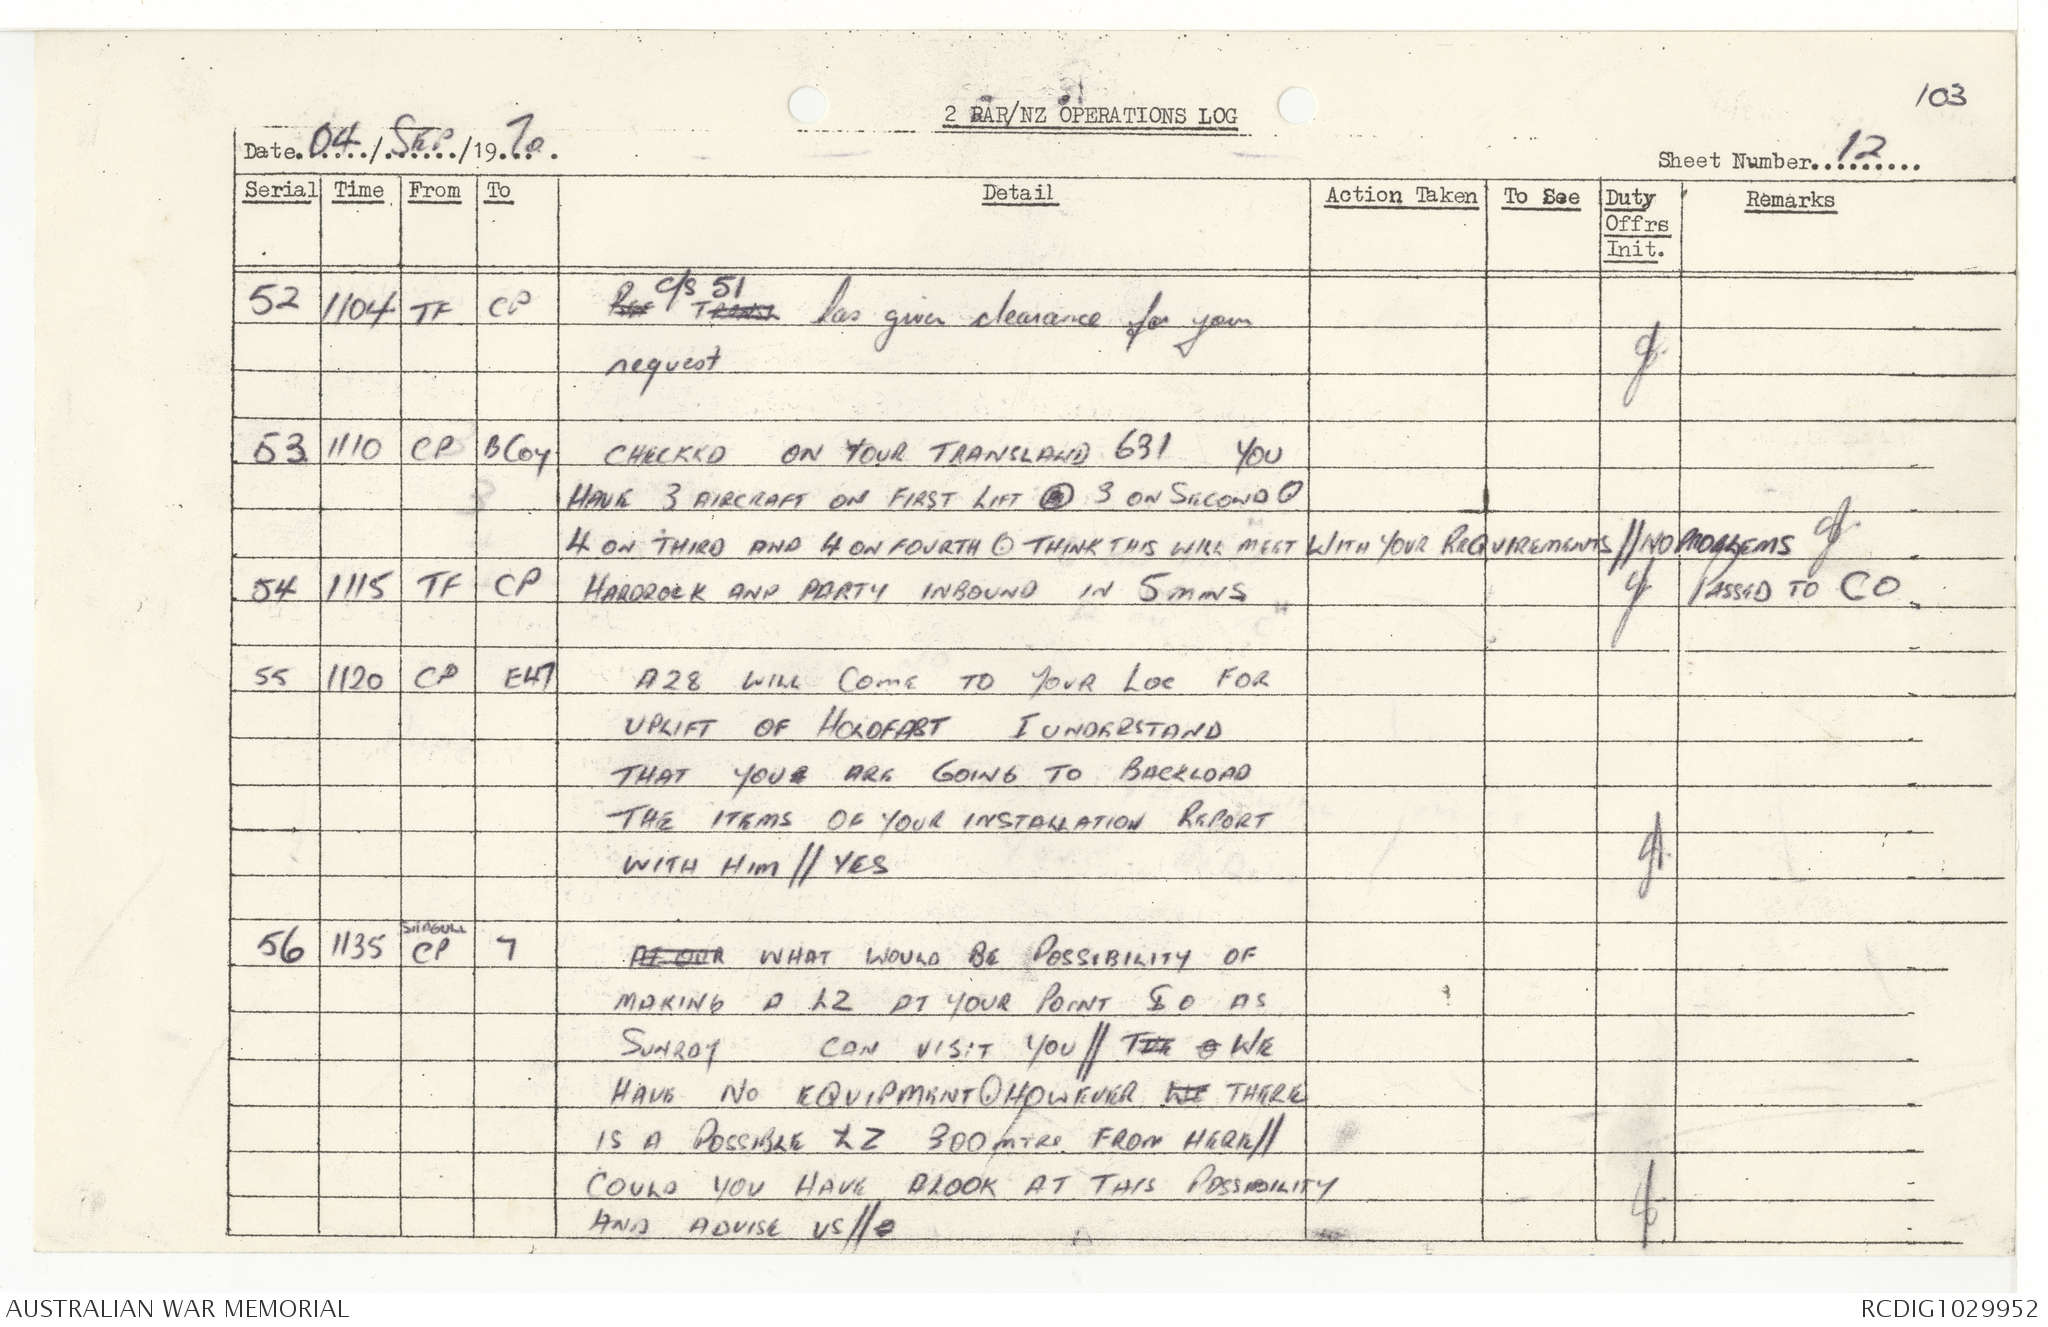 103
2 RAR/NZ OPERATIONS LOG
Date 04/SEP/1970.
Sheet Number 12
Serial Time From To Detail Action Taken To See Duty Offrs Init. Remarks
52 1104 TF CP c/s 51 has given clearance for your
request
53 1110 CP B Coy CHECKED ON YOUR TRANSLAND 631 YOU
HAVE 3 AIRCRAFT ON FIRST LIFT 3 ON SECOND
4 ON THIRD AND 4 ON FOURTH THINK THIS WILL MEET WITH YOUR REQUIREMENTS // NO PROBLEMS
54 1115 TF CP HARDROCK AND PARTY INBOUND IN 5 MINS PASSED TO CO
55 1120 CP E47 A28 WILL COME TO YOUR LOC FOR
UPLIFT OF HOLDFAST I UNDERSTAND
THAT YOU ARE GOING TO BACKLOAD
THE ITEMS OF YOUR INSTALLATION REPORT
WITH HIM // YES
SEAGULL
56 1135 CP 7 WHAT WOULD BE POSSIBILITY OF
MAKING A LZ AT YOUR POINT SO AS
SUNRAY CAN VISIT YOU // WE
HAVE NO EQUIPMENT HOWEVER THERE
IS A POSSIBLE LZ 300 MTRS FROM HERE //
COULD YOU HAVE A LOOK AT THIS POSSIBILITY
AND ADVISE US //
AUSTRALIAN WAR MEMORIAL
RCDIG1029952